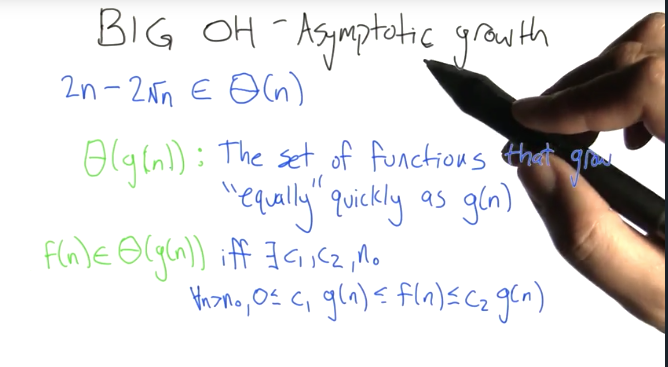 BIG OH - Asymptotic growth
2n - 2√n ∈ Θ(n)
Θ(g(n)) : The set of functions that grow
"equally" quickly as g(n)
f(n) ∈ Θ(g(n)) iff ∃ c₁, c₂, n₀
∀n>n₀, 0 ≤ c₁ g(n) ≤ f(n) ≤ c₂ g(n)